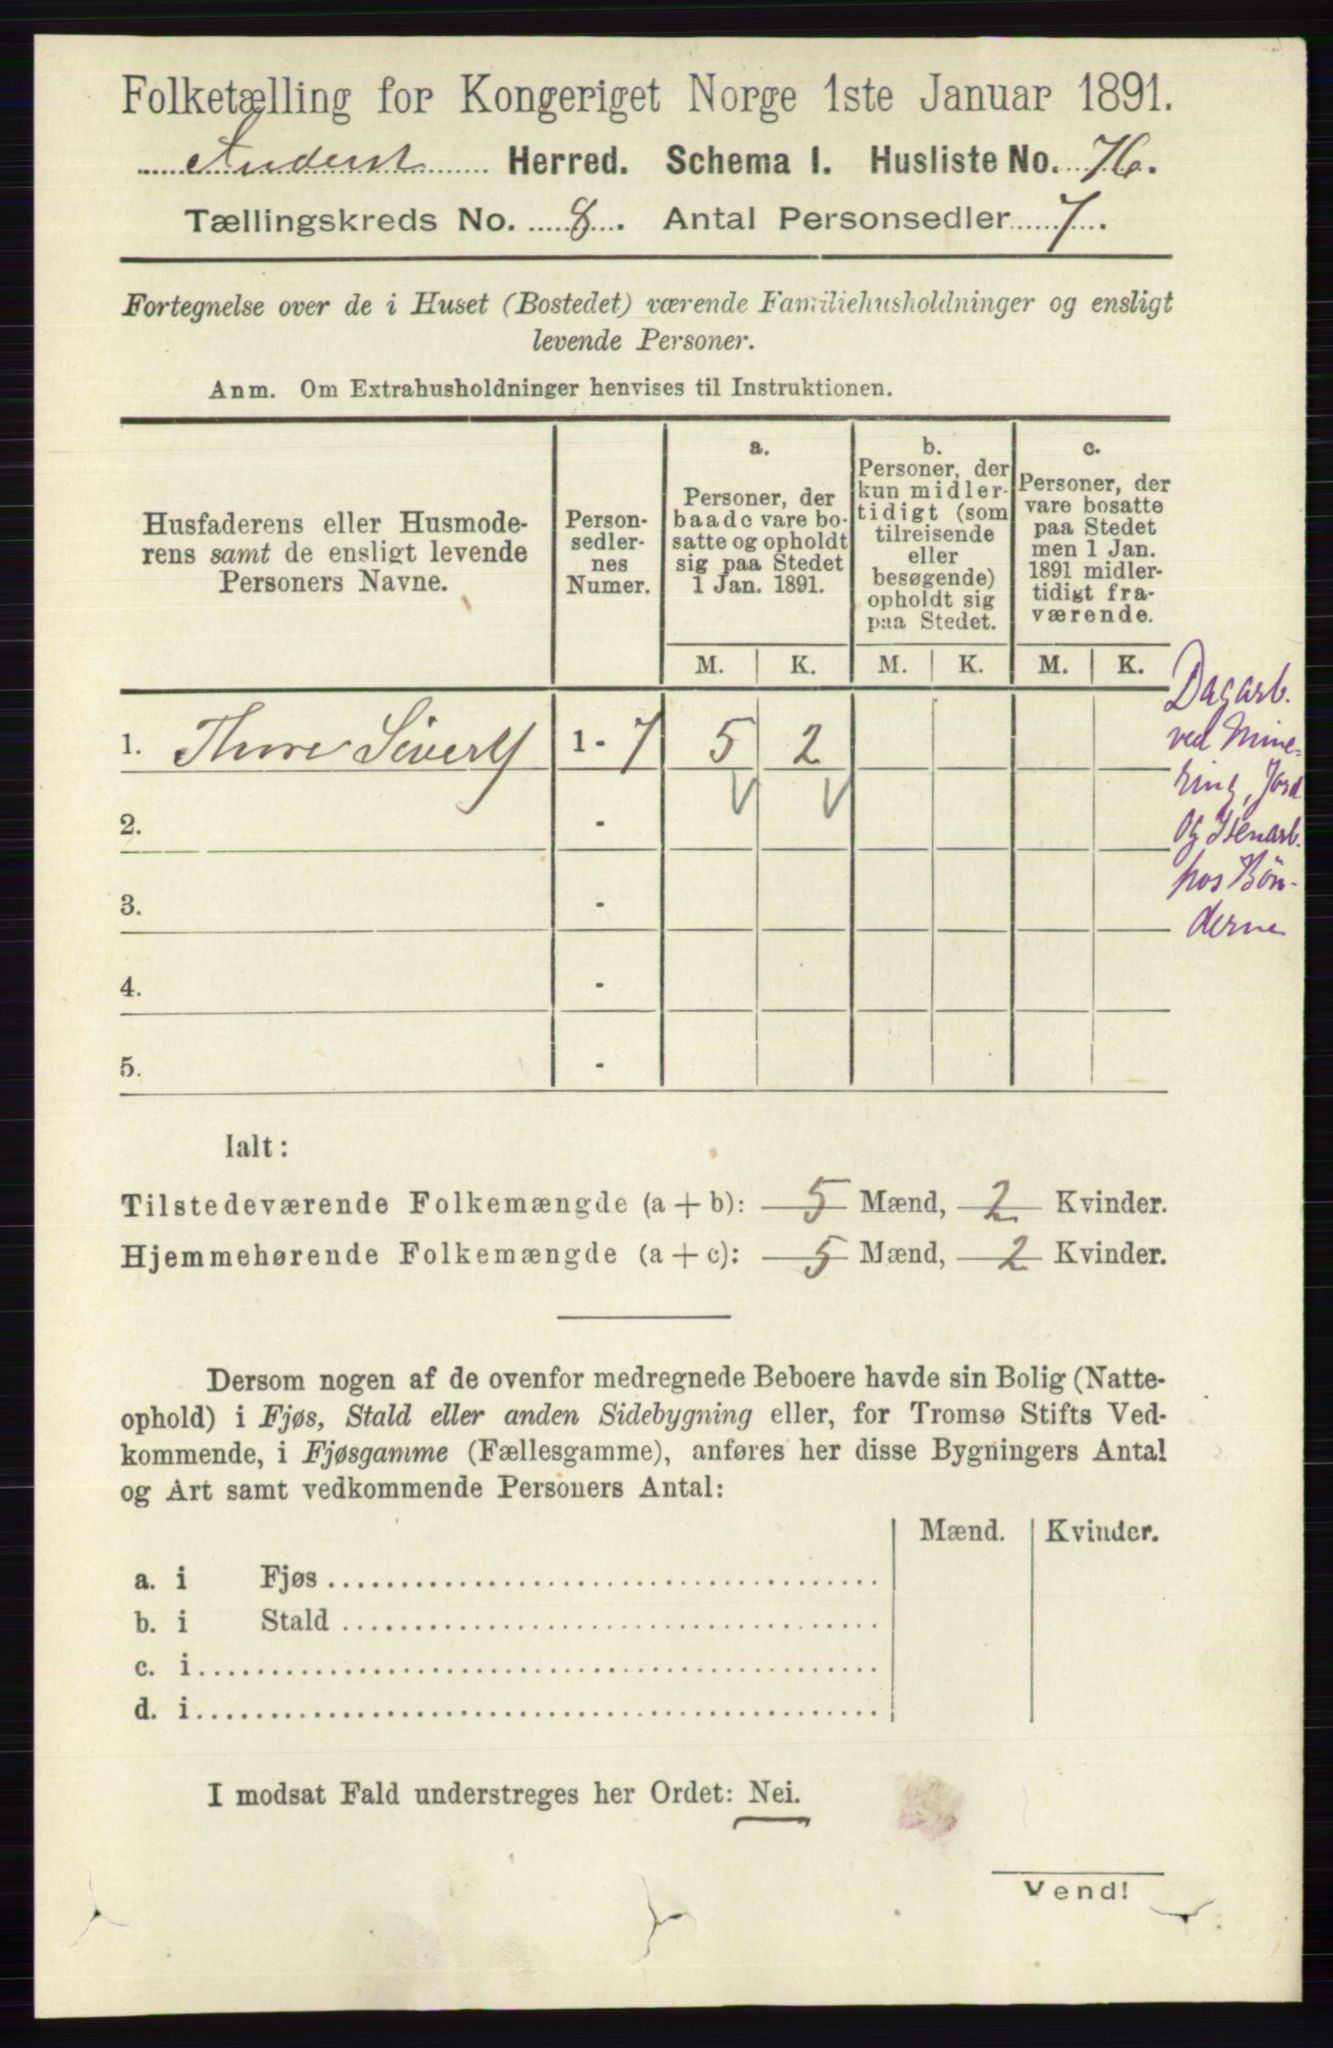 Folketælling for Kongeriget Norge 1ste Januar 1891.
Herred. Schema I. Husliste No. 76.
Tællingskreds No. 8. Antal Personsedler 7.
Fortegnelse over de i Huset (Bostedet) værende Familiehusholdninger og ensligt
levende Personer.
Anm. Om Extrahusholdninger henvises til Instruktionen.
Husfaderens eller Husmode-
rens samt de ensligt levende
Personers Navne.
Person-
sedler-
nes
Numer.
a.
Personer, der
baade vare bo-
satte og opholdt
sig paa Stedet
1 Jan. 1891.
b.
Personer, der
kun midler-
tidigt (som
tilreisende
eller
besøgende)
opholdt sig
paa Stedet.
c.
Personer, der
vare bosatte
paa Stedet
men 1 Jan.
1891 midler-
tidigt fra-
værende.
M. K. M. K. M. K.
1. Thore 1 - 7 5 2
2. -
3. -
4. -
5. -
Dagarb.
ved Mine-
ring, Jord
og Stenarb.
hos Bøn-
derne
Ialt:
Tilstedeværende Folkemængde (a + b): 5 Mænd, 2 Kvinder.
Hjemmehørende Folkemængde (a + c): 5 Mænd, 2 Kvinder.
Dersom nogen af de ovenfor medregnede Beboere havde sin Bolig (Natte-
ophold) i Fjøs, Stald eller anden Sidebygning eller, for Tromsø Stifts Ved-
kommende, i Fjøsgamme (Fællesgamme), anføres her disse Bygningers Antal
og Art samt vedkommende Personers Antal:
Mænd. Kvinder.
a. i Fjøs
b. i Stald
c. i
d. i
I modsat Fald understreges her Ordet: Nei.
Vend!